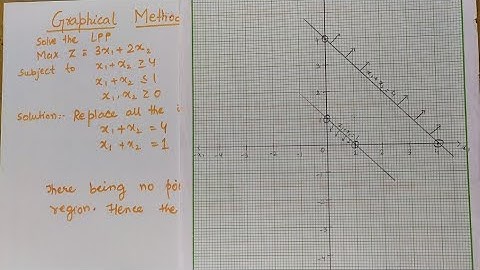 Graphical Metho
Solve the LPP
Max Z = 3x₁ + 2x₂
Subject to x₁ + x₂ ≥ 4
x₁ + x₂ ≤ 1
x₁, x₂ ≥ 0
Solution:- Replace all the i
x₁ + x₂ = 4
x₁ + x₂ = 1
There being no poi
region. Hence the
x₁+x₂=4
4
3
2
1
0
1
2
3
4